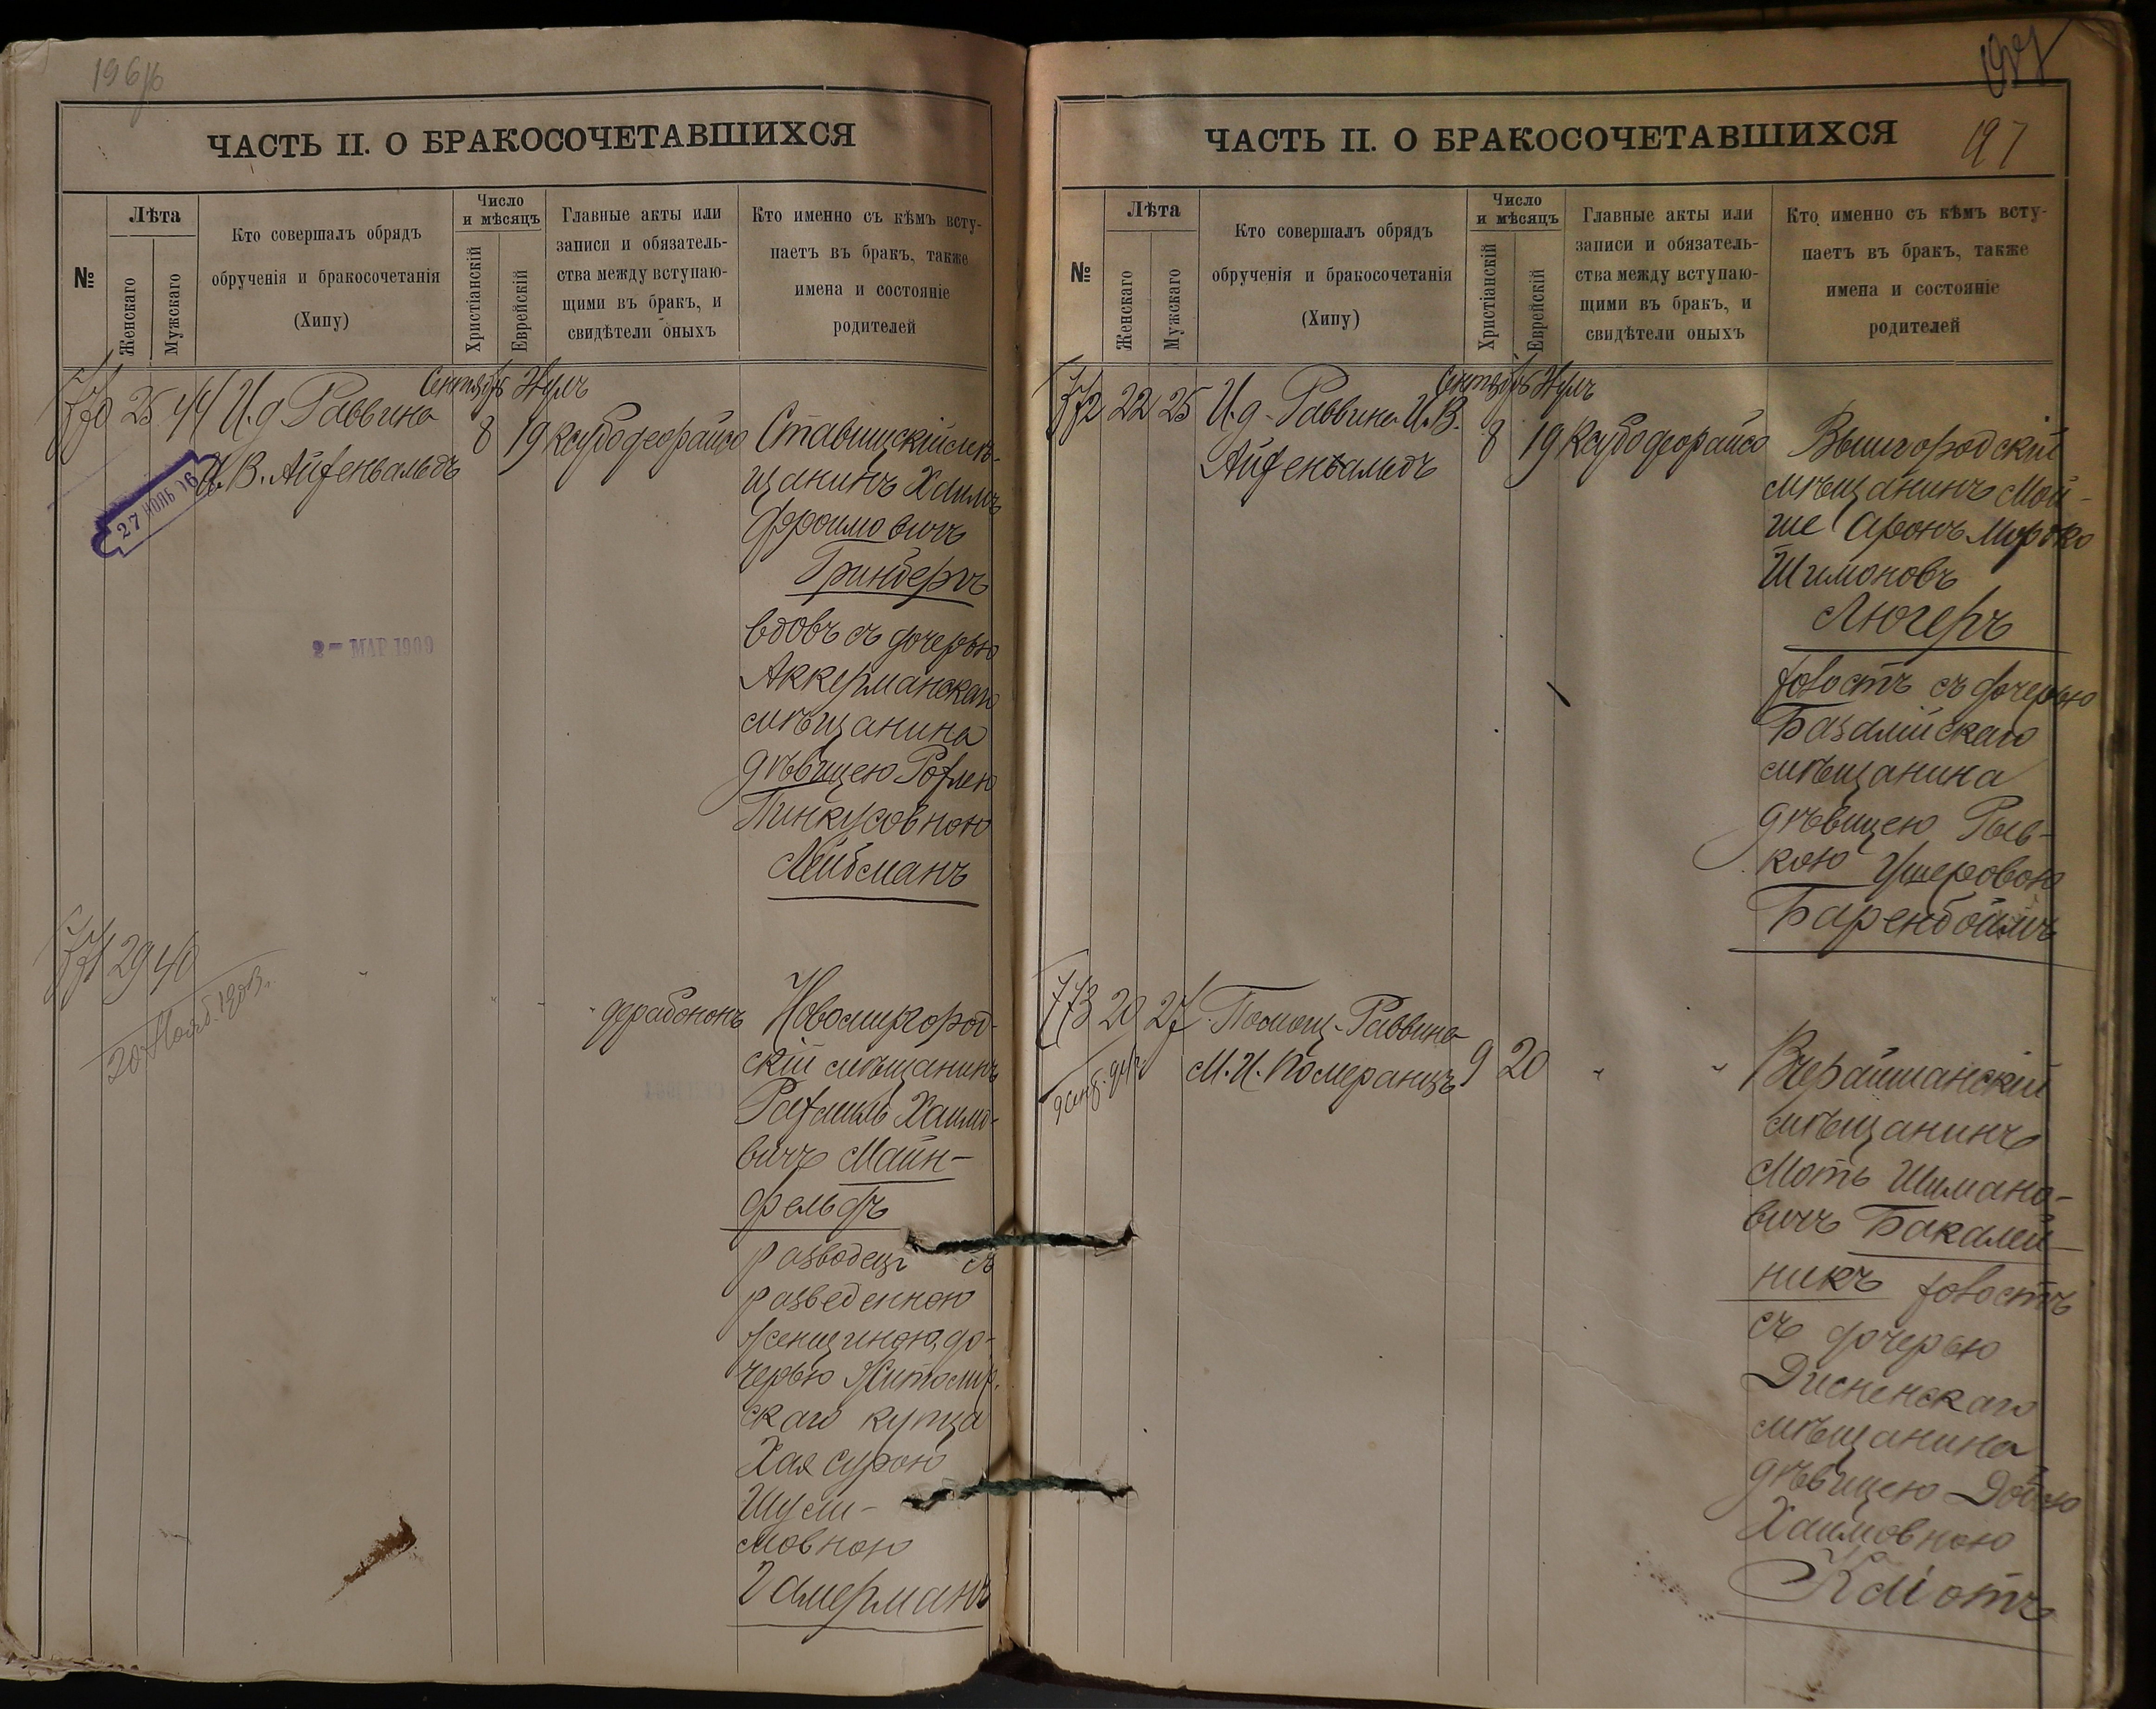 196
ЧАСТЬ II. О БРАКОСОЧЕТАВШИХСЯ
№
Лѣта
Женскаго
Мужскаго
Кто совершалъ обрядъ
обрученія и бракосочетанія
(Хипу)
Число
и мѣсяцъ
Христіанскій
Еврейскій
Главные акты или
записи и обязатель-
ства между вступаю-
щими въ бракъ, и
свидѣтели оныхъ
Кто именно съ кѣмъ всту-
паетъ въ бракъ, также
имена и состояніе
родителей
770 25 44 И.д Раввина
Сентябрь
8 19
И.В. Айзенвальдъ
27 НОЯБ 16
2 - МАР 1909
Ставищскій мѣ-
щанинъ Хаимъ
Фроимовичъ
Гринбергъ
вдовъ съ дочерью
Аккерманскаго
мѣщанина
дѣвицею Рейзею
Пинкусовною
Лейбманъ
771 29 40
20 Нояб. 1903.
Новомиргород-
скій мѣщанинъ
Рафаилъ Хаимо-
вичъ Майн-
фельдъ
разводецъ съ
разведенною
женщиною, до-
черью Житомир-
скаго купца
Хая Сурою
Шули-
мовною
Гамерманъ
197
197
ЧАСТЬ II. О БРАКОСОЧЕТАВШИХСЯ
№
Лѣта
Женскаго
Мужскаго
Кто совершалъ обрядъ
обрученія и бракосочетанія
(Хипу)
Число
и мѣсяцъ
Христіанскій
Еврейскій
Главные акты или
записи и обязатель-
ства между вступаю-
щими въ бракъ, и
свидѣтели оныхъ
Кто именно съ кѣмъ всту-
паетъ въ бракъ, также
имена и состояніе
родителей
772 22 25 И.д. Раввина И.В.
Айзенвальдъ
Сентябрь
8 19
Вышгородскій
мѣщанинъ Мой-
ше Аронъ Мордко
Шимоновъ
Люгеръ
холостъ съ дочерью
Базалійскаго
мѣщанина
дѣвицею Рыв-
кою Ушеровою
Баренбоймъ
773 20 27 Помощ. Раввина
М.И. Померанцъ 9 20
Вчерайшанскій
мѣщанинъ
Моть Шимано-
вичъ Бакалей-
никъ холостъ
съ дочерью
Дисненскаго
мѣщанина
дѣвицею
Хаимовною
Хаіотъ